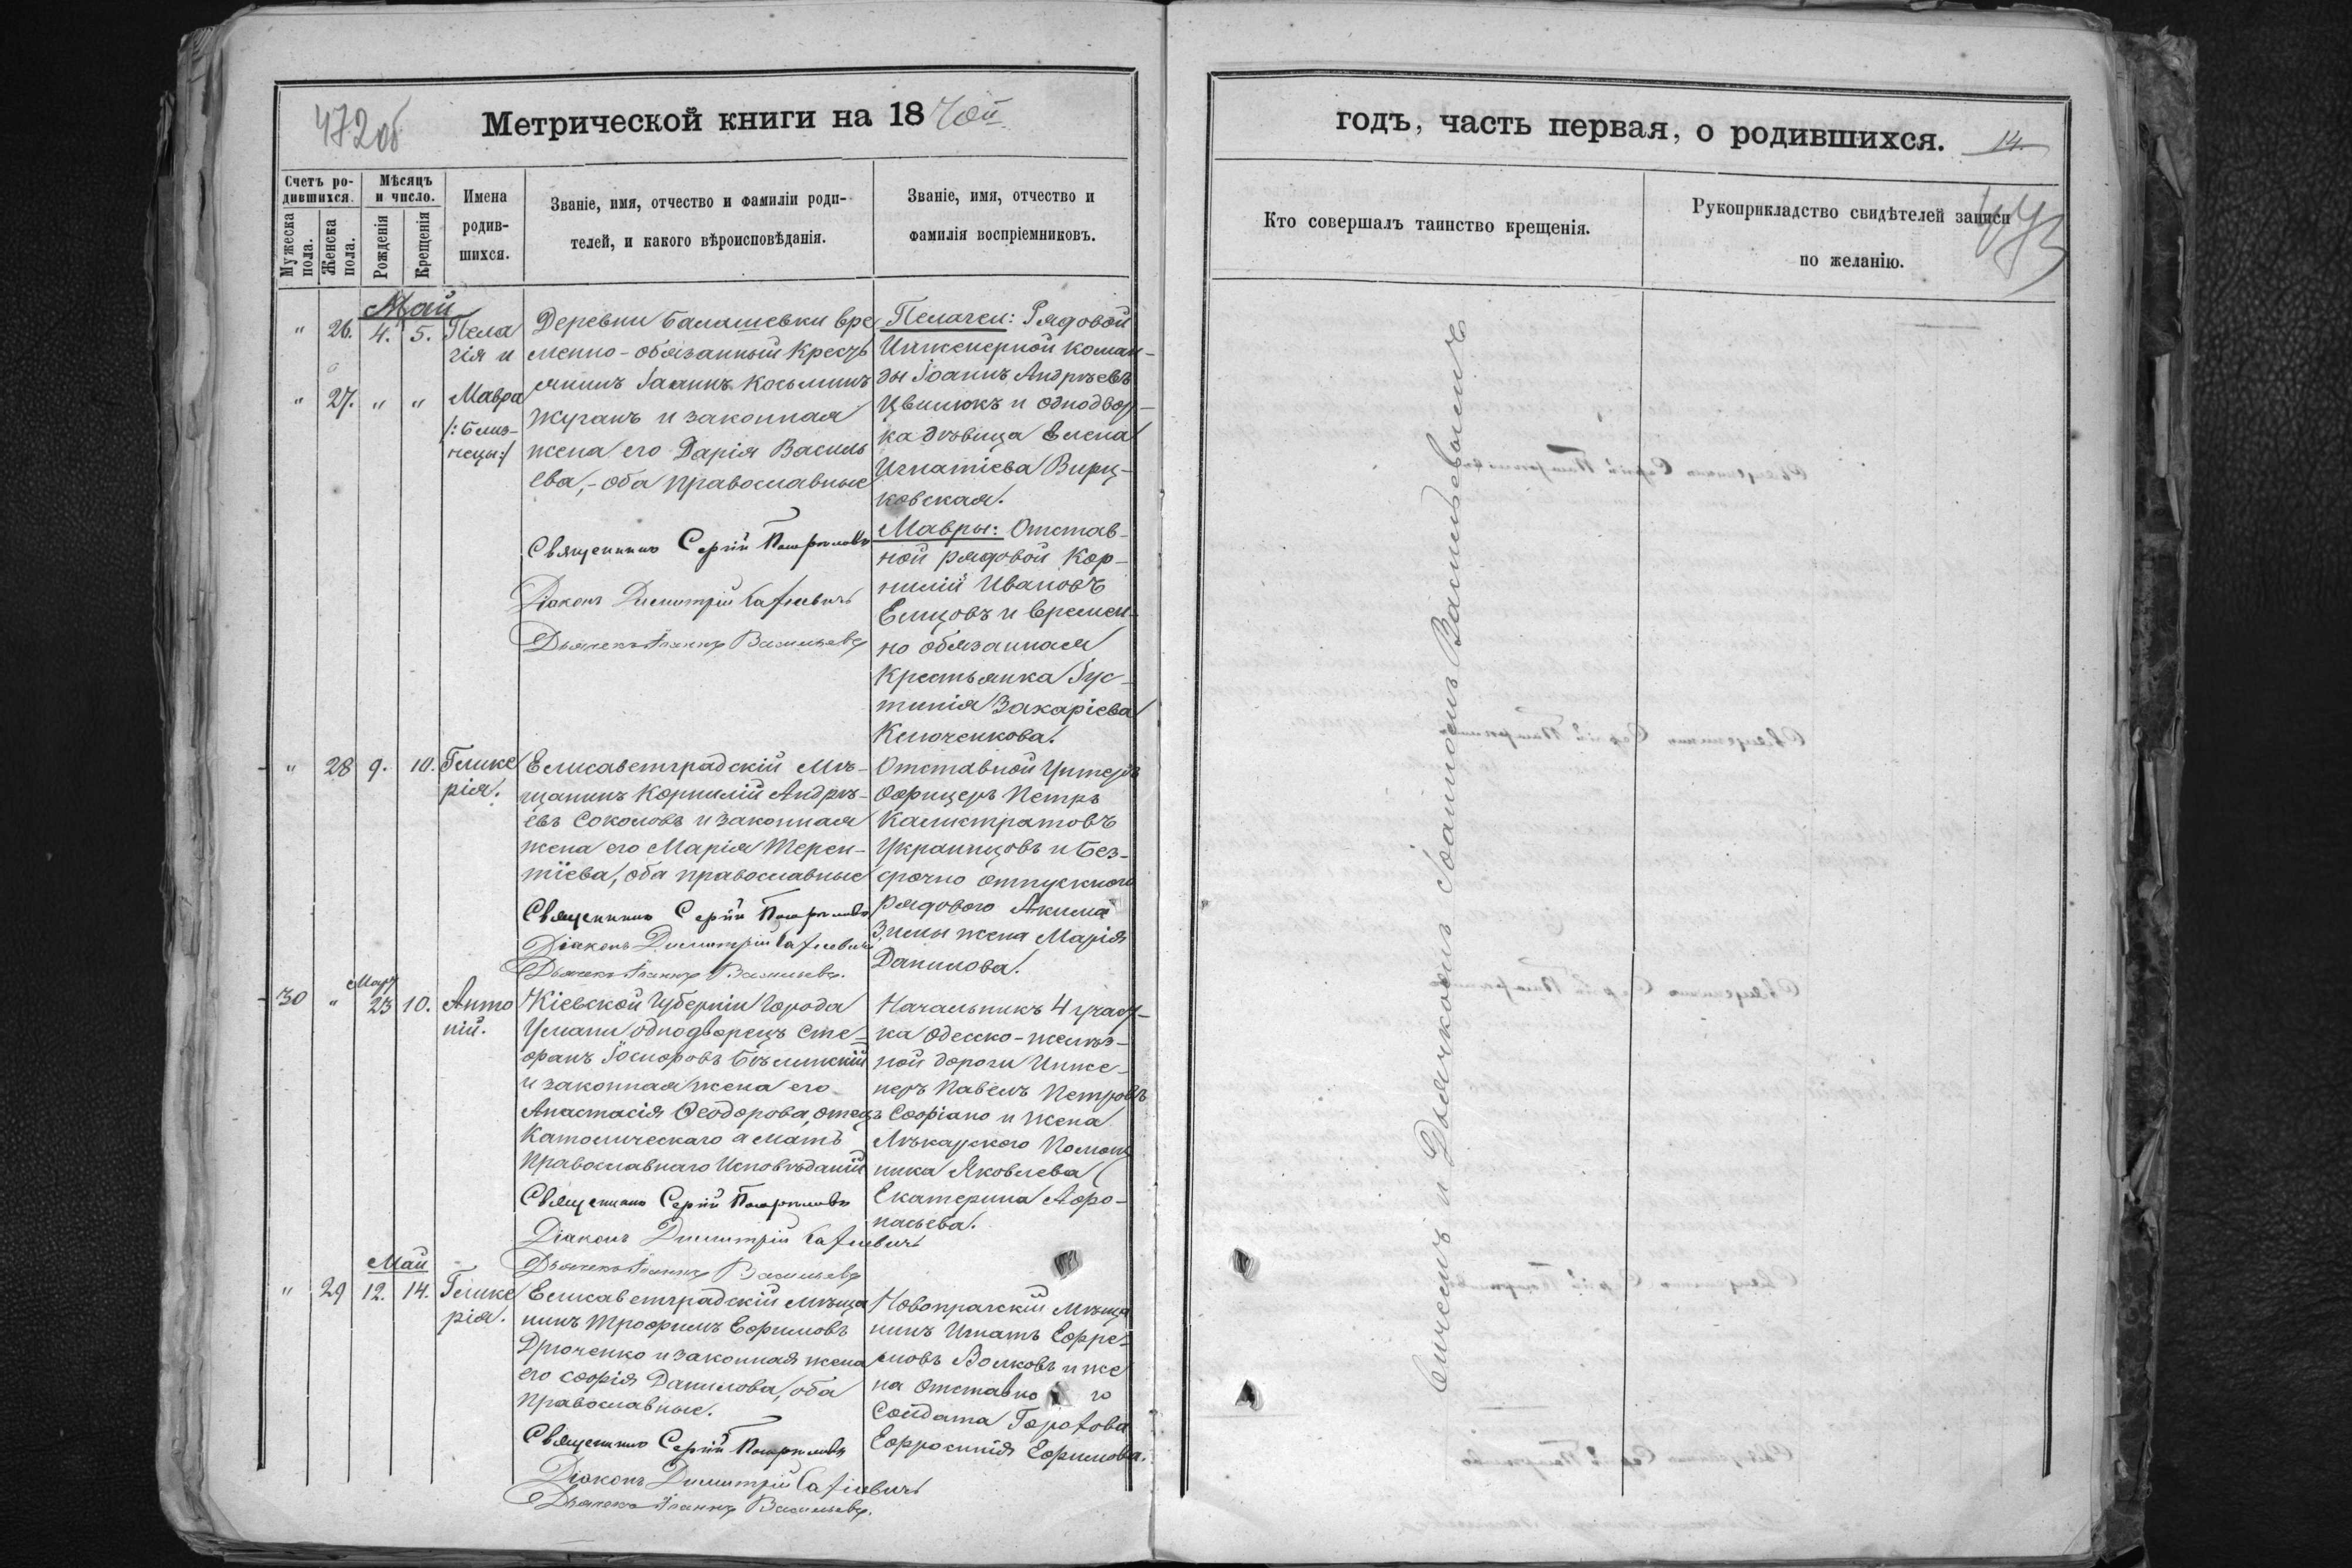 472об
Метрической книги на 1870й
годъ, часть первая, о родившихся. 14.
473
Счетъ ро-
дившихся.
Мѣсяцъ
и число.
Мужеска
пола.
Женска
пола.
Рожденія
Крещенія
Имена
родив-
шихся.
Званіе, имя, отчество и фамиліи роди-
телей, и какого вѣроисповѣданія.
Званіе, имя, отчество и
фамилія воспріемниковъ.
Кто совершалъ таинство крещенія.
Рукоприкладство свидѣтелей записи
по желанію.
Май
" 26. 4. 5. Пела
гія и
" 27. " " Мавра
/:близ-
нецы:/
Деревни Балашевки вре
менно-обязанный Кресть
янинъ Іоаннъ Косьминъ
Жуганъ и законная
жена его Дарія Василь
ева,- оба православные
Священникъ Сергій
Діаконъ Димитрій
Дьячекъ Іоаннъ Васильевъ
Пелагеи: Рядовой
Инженерной коман-
ды Іоаннъ Андрѣевъ
Цвинюкъ и однодвор-
ка дѣвица Елена
Игнатіева Вирц-
ковская.
Мавры: Отстав-
ной рядовой Кор-
нилій Ивановъ
Елцовъ и времен-
но обязанная
Крестьянка Іус-
тинія Захаріева
Ключенкова.
" 28 9. 10. Глике
рія.
Елисаветградскій Мѣ-
щанинъ Корнилій Андрѣ-
евъ Соколовъ и законная
жена его Марія Терен-
тіева, оба православные
Священникъ Сергій
Діаконъ Димитрій
Дьячекъ Іоаннъ Васильевъ.
Отставной Унтеръ
Офицеръ Петръ
Калистратовъ
Украинцовъ и Без-
срочно отпускного
рядового Акима
Зимы жена Марія
Данилова.
Мар
30 " 23 10. Анто
ній.
Кіевской Губерніи Города
Умани однодворецъ Сте-
фанъ Іосифовъ Бѣлинскій
и законная жена его
Анастасія Ѳеодорова, отецъ
Католическаго а мать
Православнаго Исповѣданій
Священникъ Сергій
Діаконъ Димитрій
Дьячекъ Іоаннъ Васильевъ
Начальникъ 4 участ-
ка Одесско-желѣз-
ной дороги Инже-
неръ Павелъ Петровъ
Софіано и жена
Лѣкарского Помощ
ника Яковлева
Екатерина Афо-
насьева.
Май
" 29 12. 14. Глике
рія.
Елисаветградскій мѣща
нинъ Трофимъ Ефимовъ
Дрюченко и законная жена
его Софія Данилова, оба
православные.
Священникъ Сергій
Діаконъ Димитрій
Дьячекъ Іоаннъ Васильевъ.
Новопрагскій Мѣща
нинъ Игнатъ Ефре-
мовъ Волковъ и же
на отставно го
Солдата Горохова
Ефросинія Ефимова.
и Дьячкомъ Іоанномъ Васильевымъ